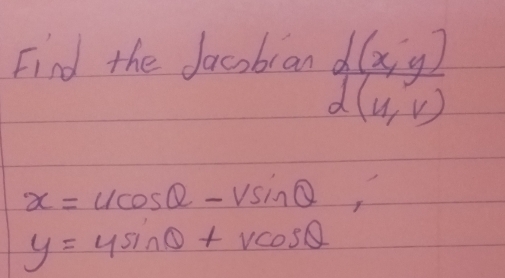 Find the Jacobian d(x,y)/d(u,v)
x = ucosθ - vsinθ ,
y = usinθ + vcosθ